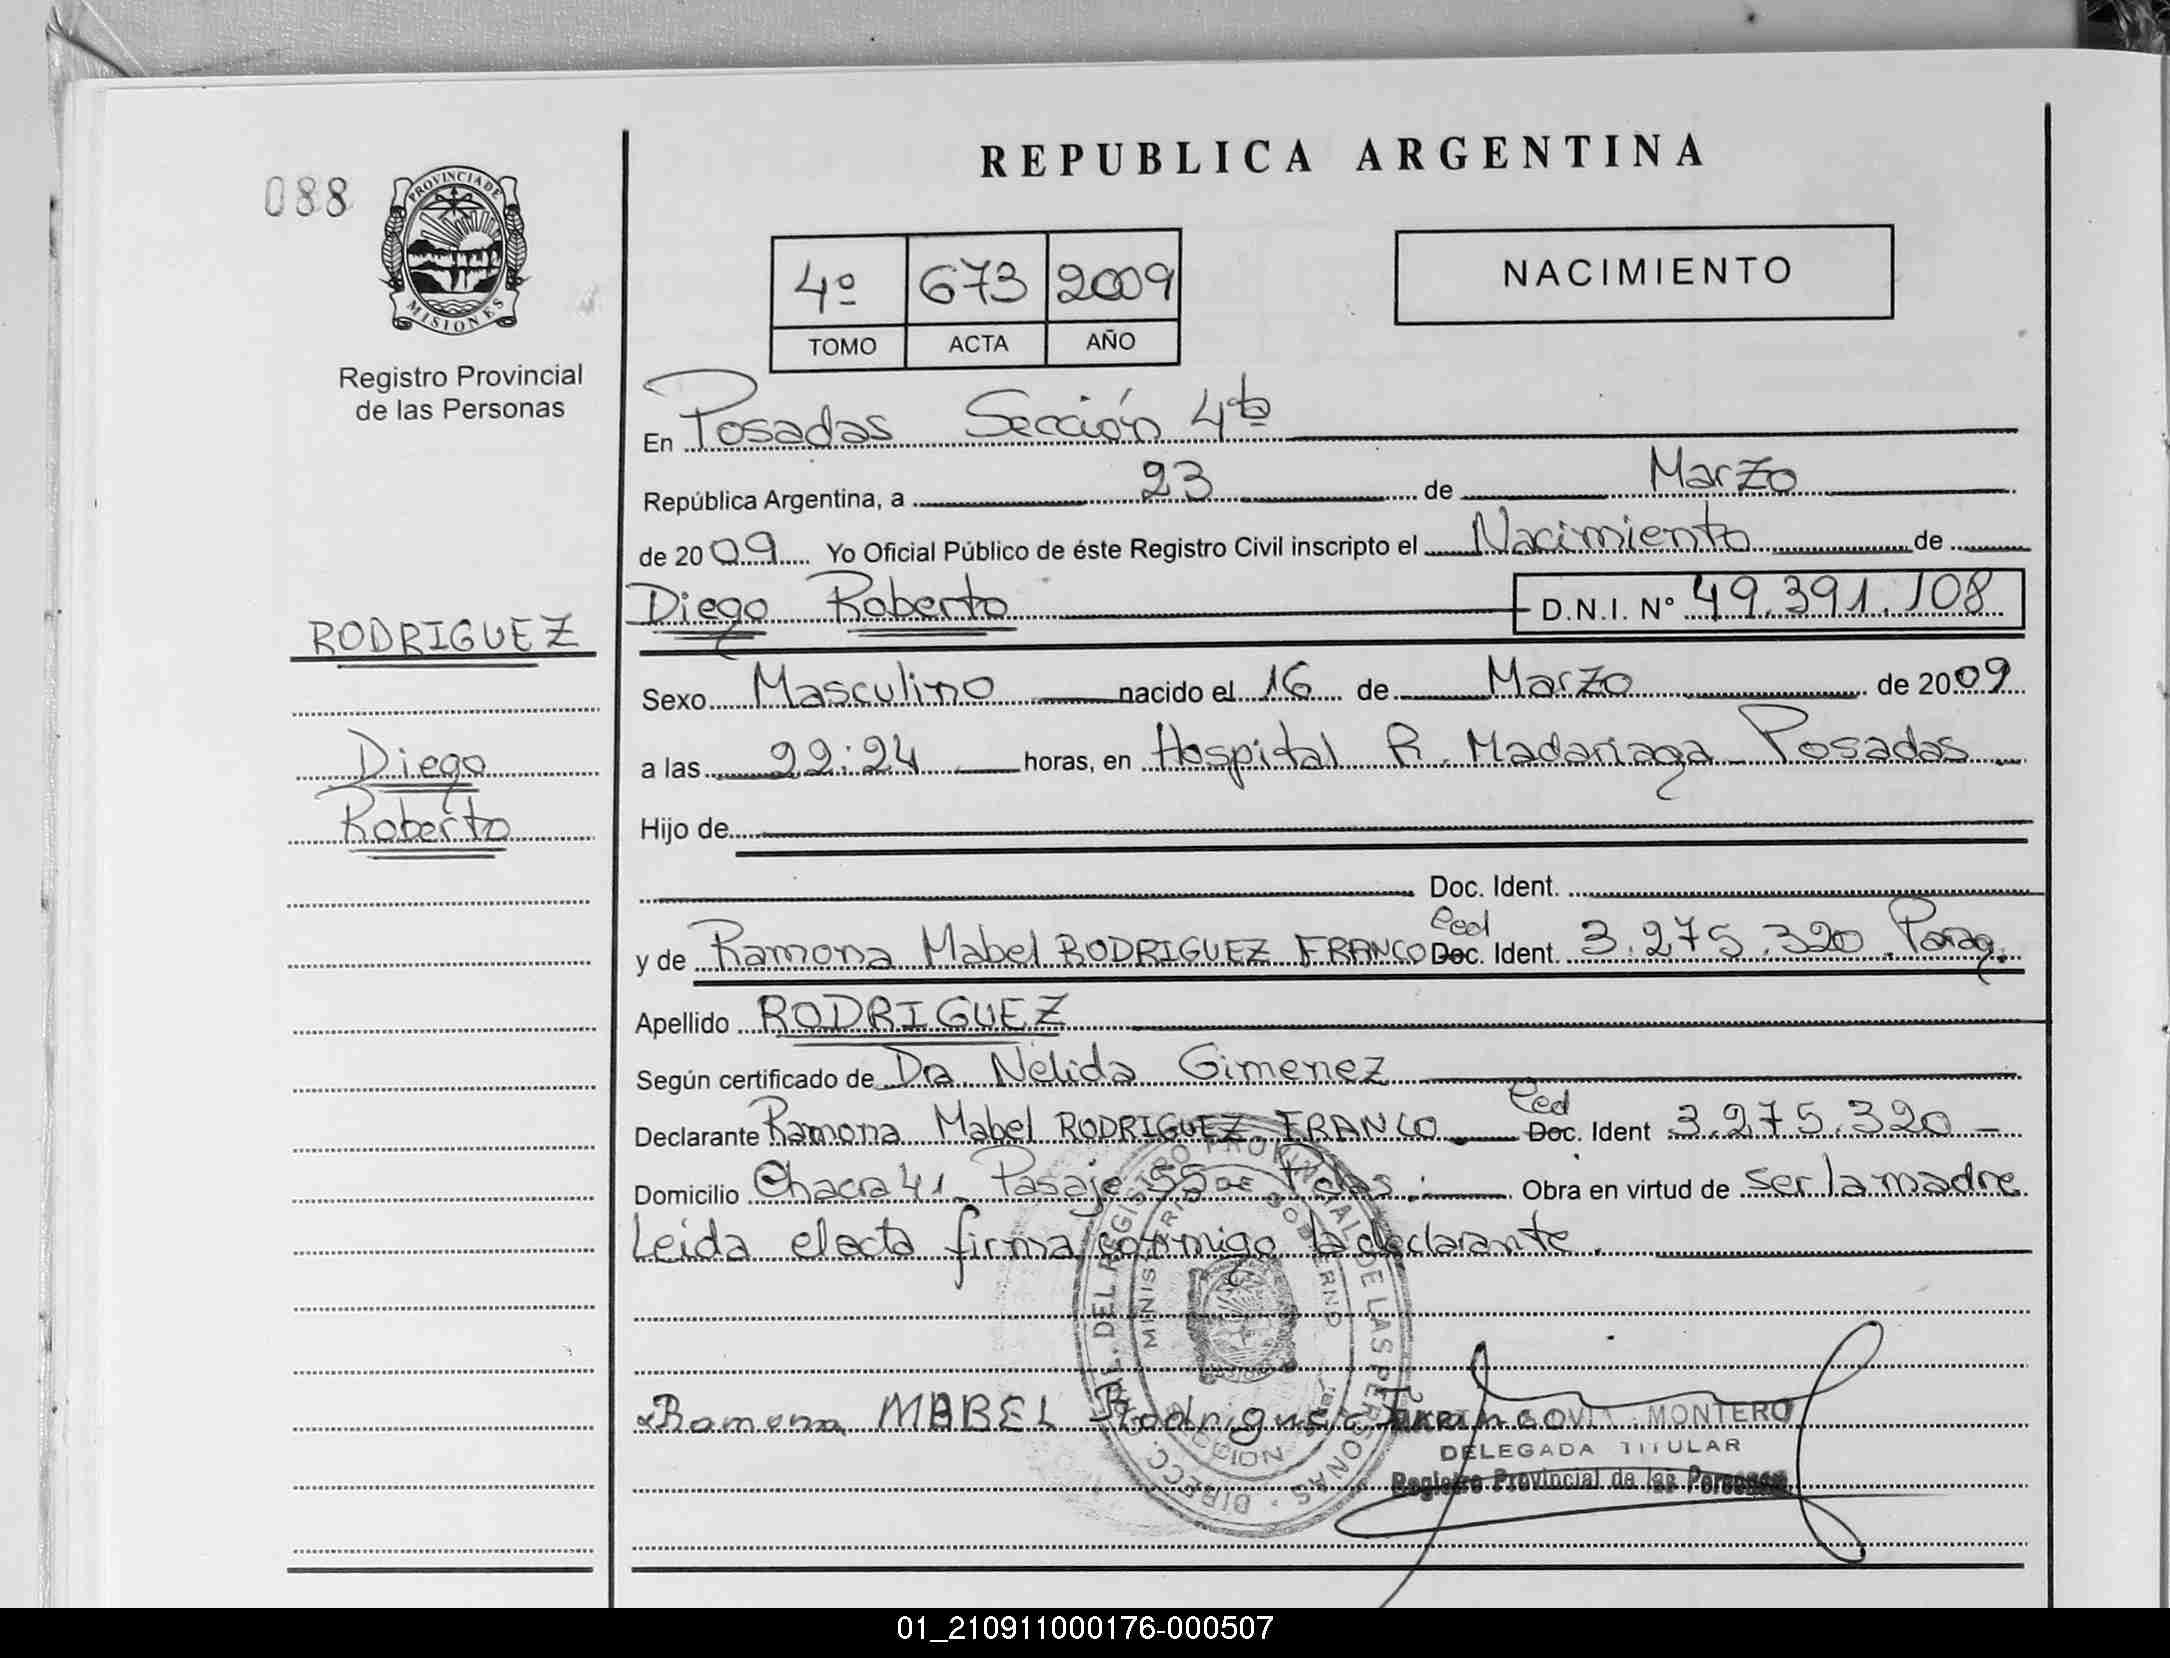 REPUBLICA ARGENTINA
088
PROVINCIA DE
MISIONES
Registro Provincial
de las Personas
4º 673 2009
TOMO ACTA AÑO
NACIMIENTO
En Posadas Sección 4ta
República Argentina, a 23 de Marzo
de 2009 Yo Oficial Público de éste Registro Civil inscripto el Nacimiento de
Diego Roberto D.N.I. Nº 49.391.108
RODRIGUEZ
Diego
Roberto
Sexo Masculino nacido el 16 de Marzo de 2009
a las 22:24 horas, en Hospital R. Madariaga Posadas
Hijo de
Doc. Ident.
Ced
y de Ramona Mabel RODRIGUEZ FRANCO Doc. Ident. 3.275.320 Parag.
Apellido RODRIGUEZ
Según certificado de Dra Nélida Gimenez
Ced
Declarante Ramona Mabel RODRIGUEZ FRANCO Doc. Ident 3.275.320
Domicilio Chacra 41 Pasaje 55 Pdas. Obra en virtud de ser la madre
Leida el acta firma conmigo la declarante.
DIRECC. DEL REGISTRO PROVINCIAL DE LAS PERSONAS
MINISTERIO DE GOBIERNO
Ramona MABEL Rodriguez Franco
MONTERO
DELEGADA TITULAR
Registro Provincial de las Personas
01_210911000176-000507